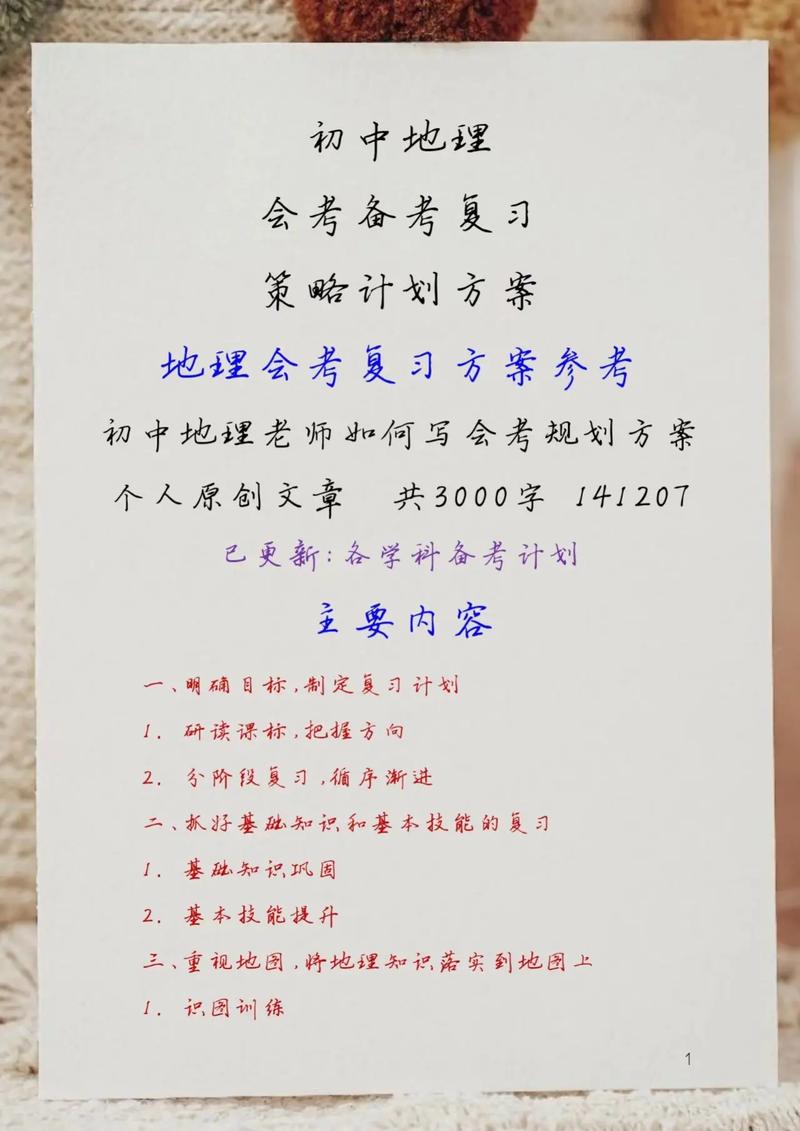 初中地理
会考备考复习
策略计划方案
地理会考复习方案参考
初中地理老师如何写会考规划方案
个人原创文章 共3000字 141207
已更新:各学科备考计划
主要内容
一、明确目标,制定复习计划
1. 研读课标,把握方向
2. 分阶段复习,循序渐进
二、抓好基础知识和基本技能的复习
1. 基础知识巩固
2. 基本技能提升
三、重视地图,将地理知识落实到地图上
1. 识图训练
1